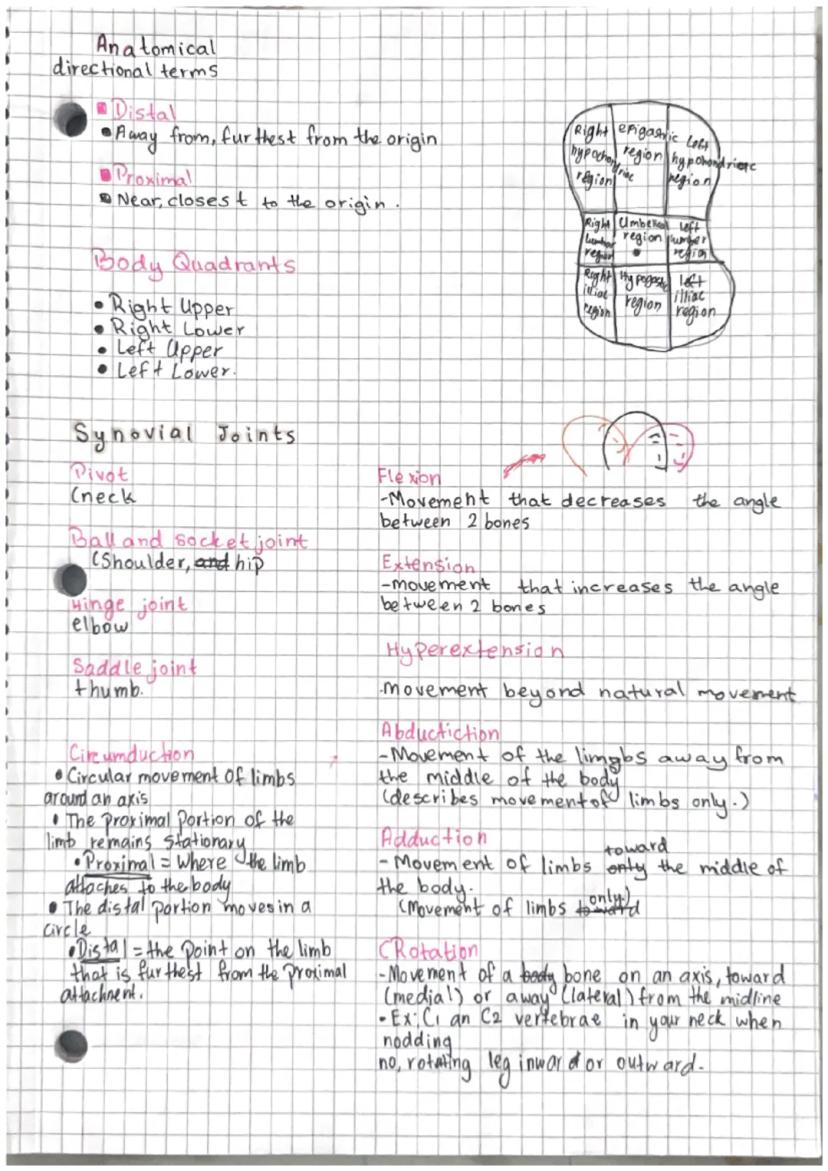 Anatomical
directional terms
Distal
• Away from, furthest from the origin
Proximal
Near, closest to the origin.
Body Quadrants
• Right Upper
• Right Lower
• Left Upper
• Left Lower.
Right hypochondriac region
epigastric region
Left hypohondriac region
Right lumbar region
Umbelical region
Left lumber region
Right illiac region
Hypogastic region
Left illiac region
Synovial Joints
Pivot
(neck
Ball and socket joint
(Shoulder, and hip
Hinge joint
elbow
Saddle joint
thumb.
Circumduction
• Circular movement of limbs
around an axis
• The proximal portion of the
limb remains stationary
• Proximal = Where the limb
attaches to the body
• The distal portion moves in a
circle
• Distal = the point on the limb
that is furthest from the proximal
attachment.
Flexion
-Movement that decreases the angle
between 2 bones
Extension
-movement that increases the angle
between 2 bones
Hyperextension
-movement beyond natural movement
Abductiction
-Movement of the limgbs away from
the middle of the body
(describes movement of limbs only.)
Adduction
- Movement of limbs only toward the middle of
the body.
(Movement of limbs toward only)
CRotation
-Movement of a body bone on an axis, toward
(medial) or away (lateral) from the midline
• Ex: C1 an C2 vertebrae in your neck when
nodding
no, rotating leg inward or outward.